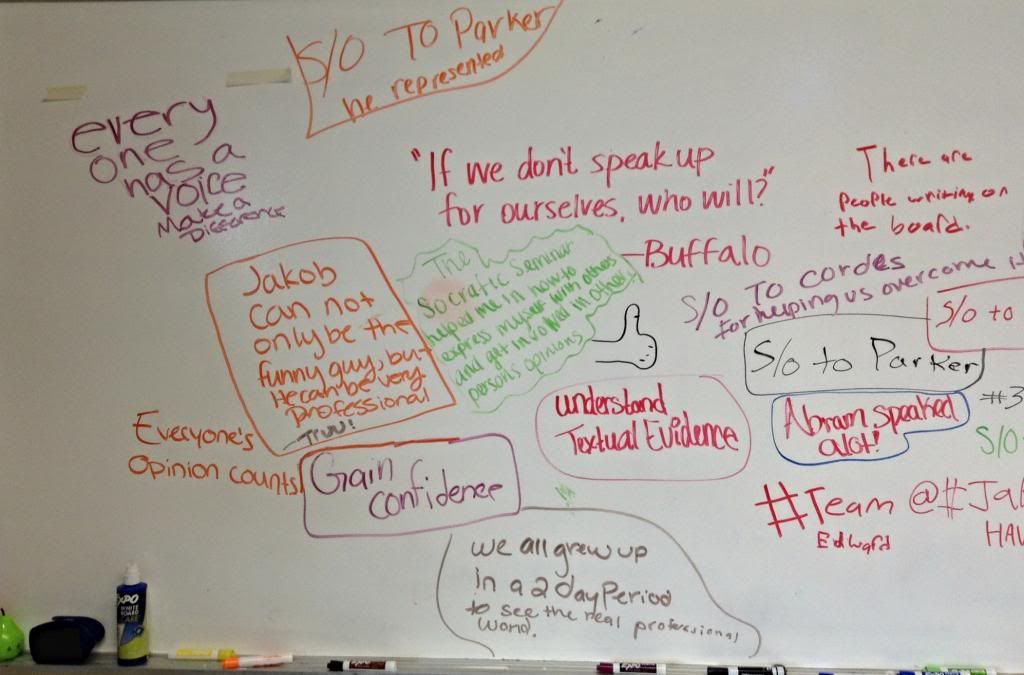 S/O TO Parker
he represented
every
one
has a
voice
Make a
Difference
"If we don't speak up
for ourselves, who will?"
-Buffalo
There are
People writing on
the board.
Jakob
can not
only be the
funny guy, but
He can be very
professional
Truu!
The
Socratic Seminar
helped me in how to
express myself with others
and get involved in other
person's opinions
S/O TO CORDES
for helping us overcome it
S/o to
S/o to Parker
understand
Textual Evidence
Abram speaked
alot!
#3
S/O
Everyone's
Opinion counts
Gain
confidence
#Team @#Jak
Edward
HAV
we all grew up
in a 2 day Period
to see the real professional
world.
EXPO
WHITE
BOARD
CARE
EXPO